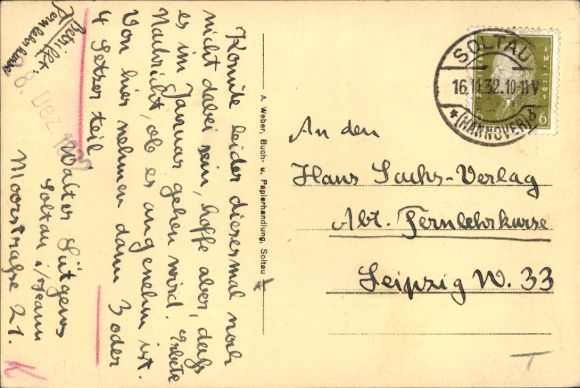 Konnte leider diesesmal noch
nicht dabei sein, hoffe aber, daß
es im Januar gehen wird. Erbitte
Nachricht, ob es angenehm ist.
Von hier nehmen dann 3 oder
4 Setzer teil
Walter Lütgens
Soltau i/Hann
Moorstraße 21.
Betrifft
Fernlehrkurse
8. Dez. 1932
A. Weber, Buch- u. Papierhandlung, Soltau
SOLTAU
16.11.32.10-11V
(HANNOVER)
6
An den
Hans Sachs-Verlag
Abt. Fernlehrkurse
Leipzig W. 33
T